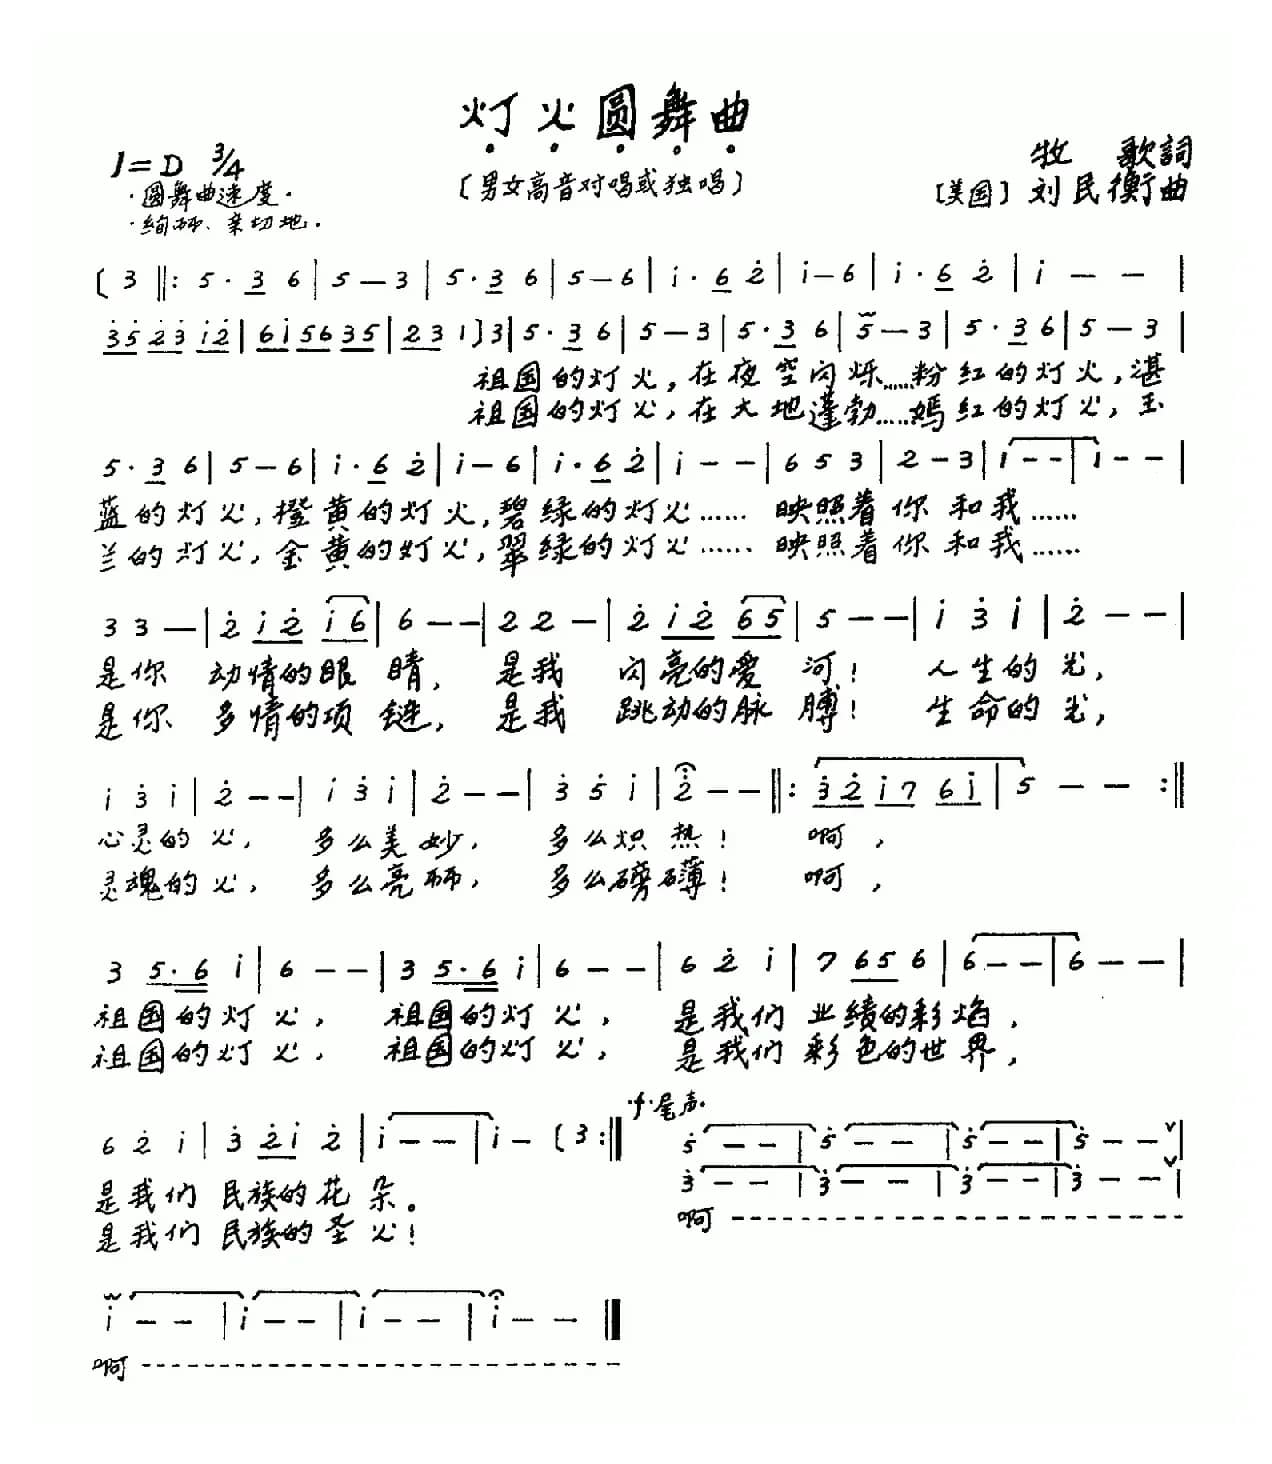 灯火圆舞曲
1=D 3/4
牧 歌詞
·圆舞曲速度·
〔男女高音对唱或独唱〕
〔美国〕刘民衡曲
·绚丽、亲切地.
(3 ‖: 5·3 6 | 5—3 | 5·3 6 | 5—6 | i·6 2̇ | i—6 | i·6 2̇ | i — — |
3̇5̇ 2̇3̇ i2̇ | 6i 56 35 | 23 1) 3 | 5·3 6 | 5—3 | 5·3 6 | 5—3 | 5·3 6 | 5—3 |
祖国的灯火,在夜空闪烁……粉红的灯火,湛
祖国的灯火,在大地蓬勃……嫣红的灯火,玉
5·3 6 | 5—6 | i·6 2̇ | i—6 | i·6 2̇ | i — — | 6 5 3 | 2—3 | 1 — — | 1 — — |
蓝的灯火,橙黄的灯火,碧绿的灯火…… 映照着你和我……
兰的灯火,金黄的灯火,翠绿的灯火…… 映照着你和我……
3 3 — | 2̇ i2̇ i6 | 6 — — | 2 2 — | 2̇ i2̇ 65 | 5 — — | i 3̇ i | 2̇ — — |
是你 动情的眼睛, 是我 闪亮的爱河! 人生的光,
是你 多情的项链, 是我 跳动的脉膊! 生命的光,
i 3̇ i | 2̇ — — | i 3̇ i | 2̇ — — | 3̇ 5̇ i | 2̇ — — ‖: 3̇2̇ i7 6i | 5 — — :‖
心灵的火, 多么美妙, 多么炽热! 啊,
灵魂的火, 多么亮丽, 多么磅礴! 啊,
3 5·6 i | 6 — — | 3 5·6 i | 6 — — | 6 2̇ i | 7 65 6 | 6 — — | 6 — — |
祖国的灯火, 祖国的灯火, 是我们业绩的彩焰,
祖国的灯火, 祖国的灯火, 是我们彩色的世界,
·f·尾声.
6 2̇ i | 3̇ 2̇i 2̇ | i — — | i — (3 :‖
5̇ — — | 5̇ — — | 5̇ — — | 5̇ — — |
3̇ — — | 3̇ — — | 3̇ — — | 3̇ — — |
是我们 民族的花朵。
啊
是我们 民族的圣火!
i — — | i — — | i — — | i — — ‖
啊